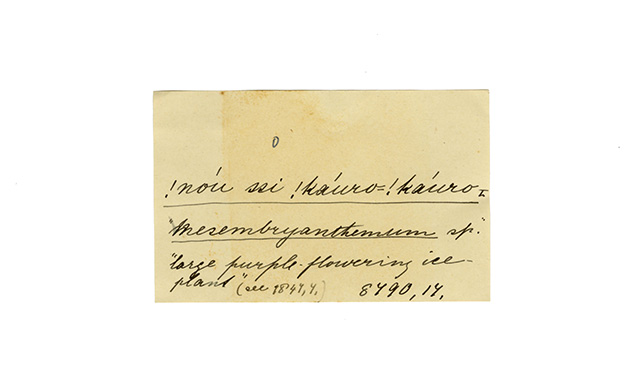 0
!nóu ssi !káuro=!káuro-I.
"Mesembryanthemum sp."
"large purple-flowering ice-
plant" (see 1847, 7.) 8790, 17.